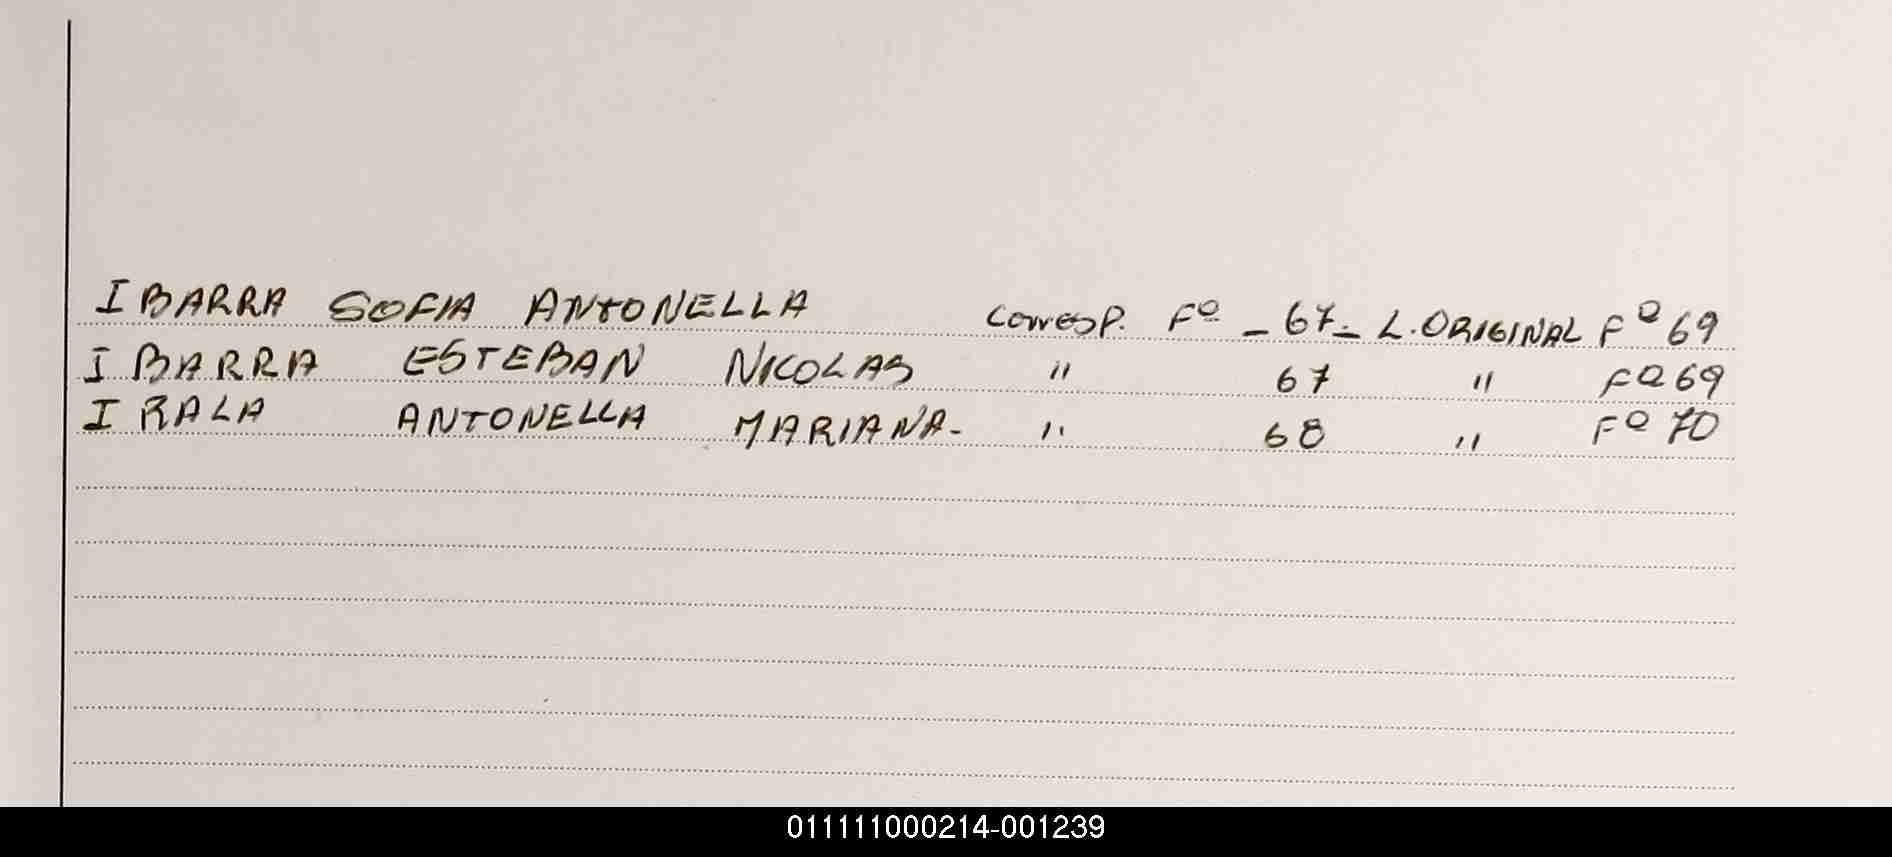 IBARRA SOFIA ANTONELLA Corresp. Fº - 67 - L. ORIGINAL Fº 69
IBARRA ESTEBAN NICOLAS " 67 " Fº 69
IRALA ANTONELLA MARIANA - " 68 " Fº 70
011111000214-001239